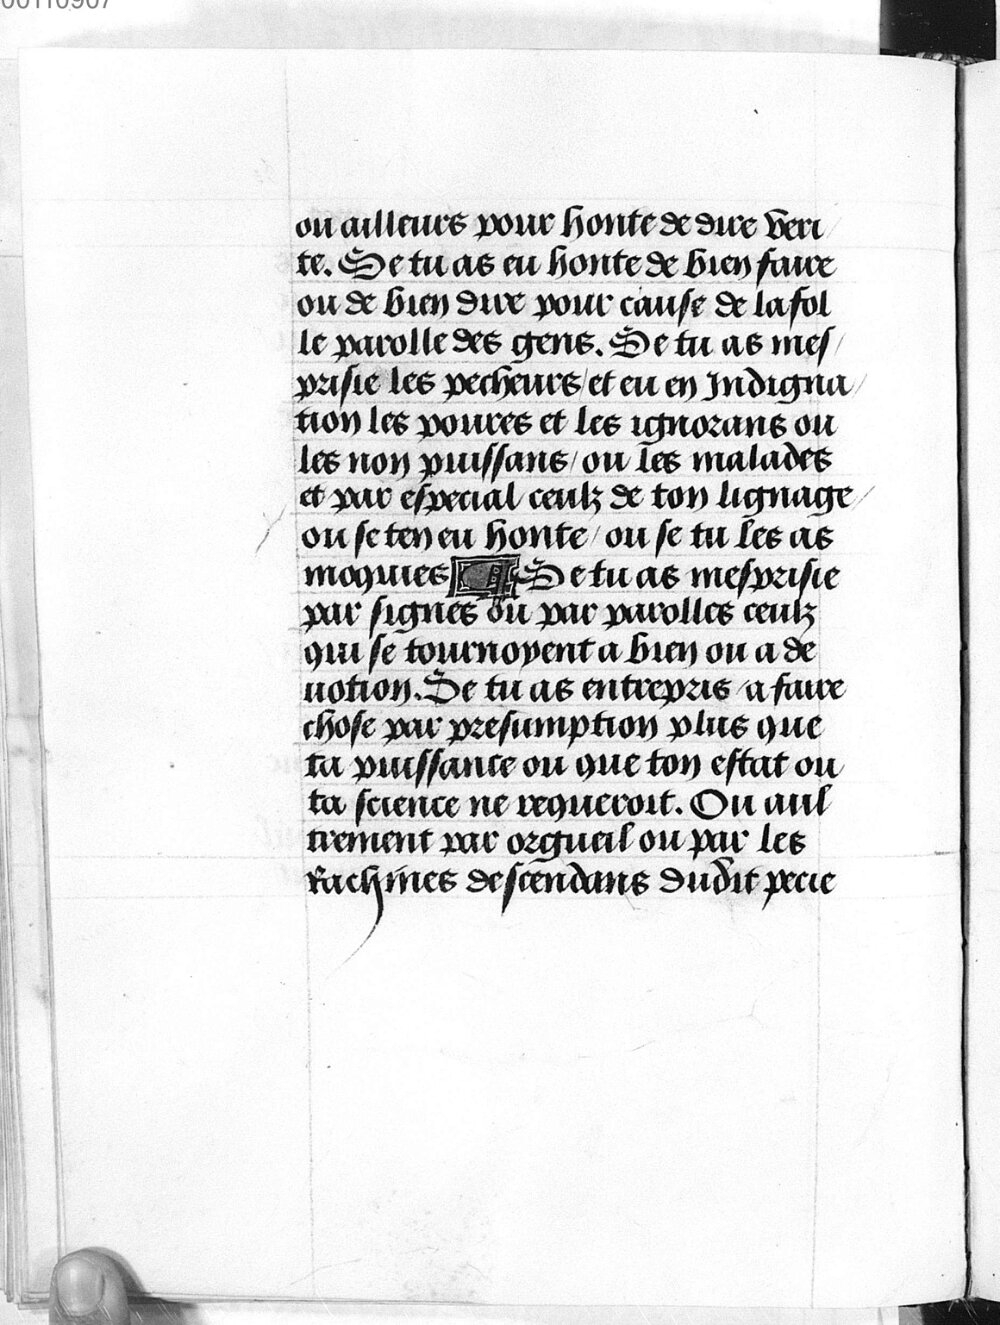 00110907
ou ailleurs pour honte de dire veri
te. Se tu as eu honte de bien faire
ou de bien dire pour cause de la fol
le parolle des gens. Se tu as mes/
prisie les pecheurs/ et eu en Indigna/
tion les poures et les ignorans ou
les non puissans/ ou les malades
et par especial ceulz de ton lignage/
ou se ten eu honte/ ou se tu les as
moquies ¶ Se tu as mesprisie
par signes ou par parolles ceulz
qui se tournoyent a bien ou a de
uotion. Se tu as entrepris a faire
chose par presumption plus que
ta puissance ou que ton estat ou
ta science ne requeroit. Ou aul
trement par orgueil ou par les
Rachines descendans dudit pecie